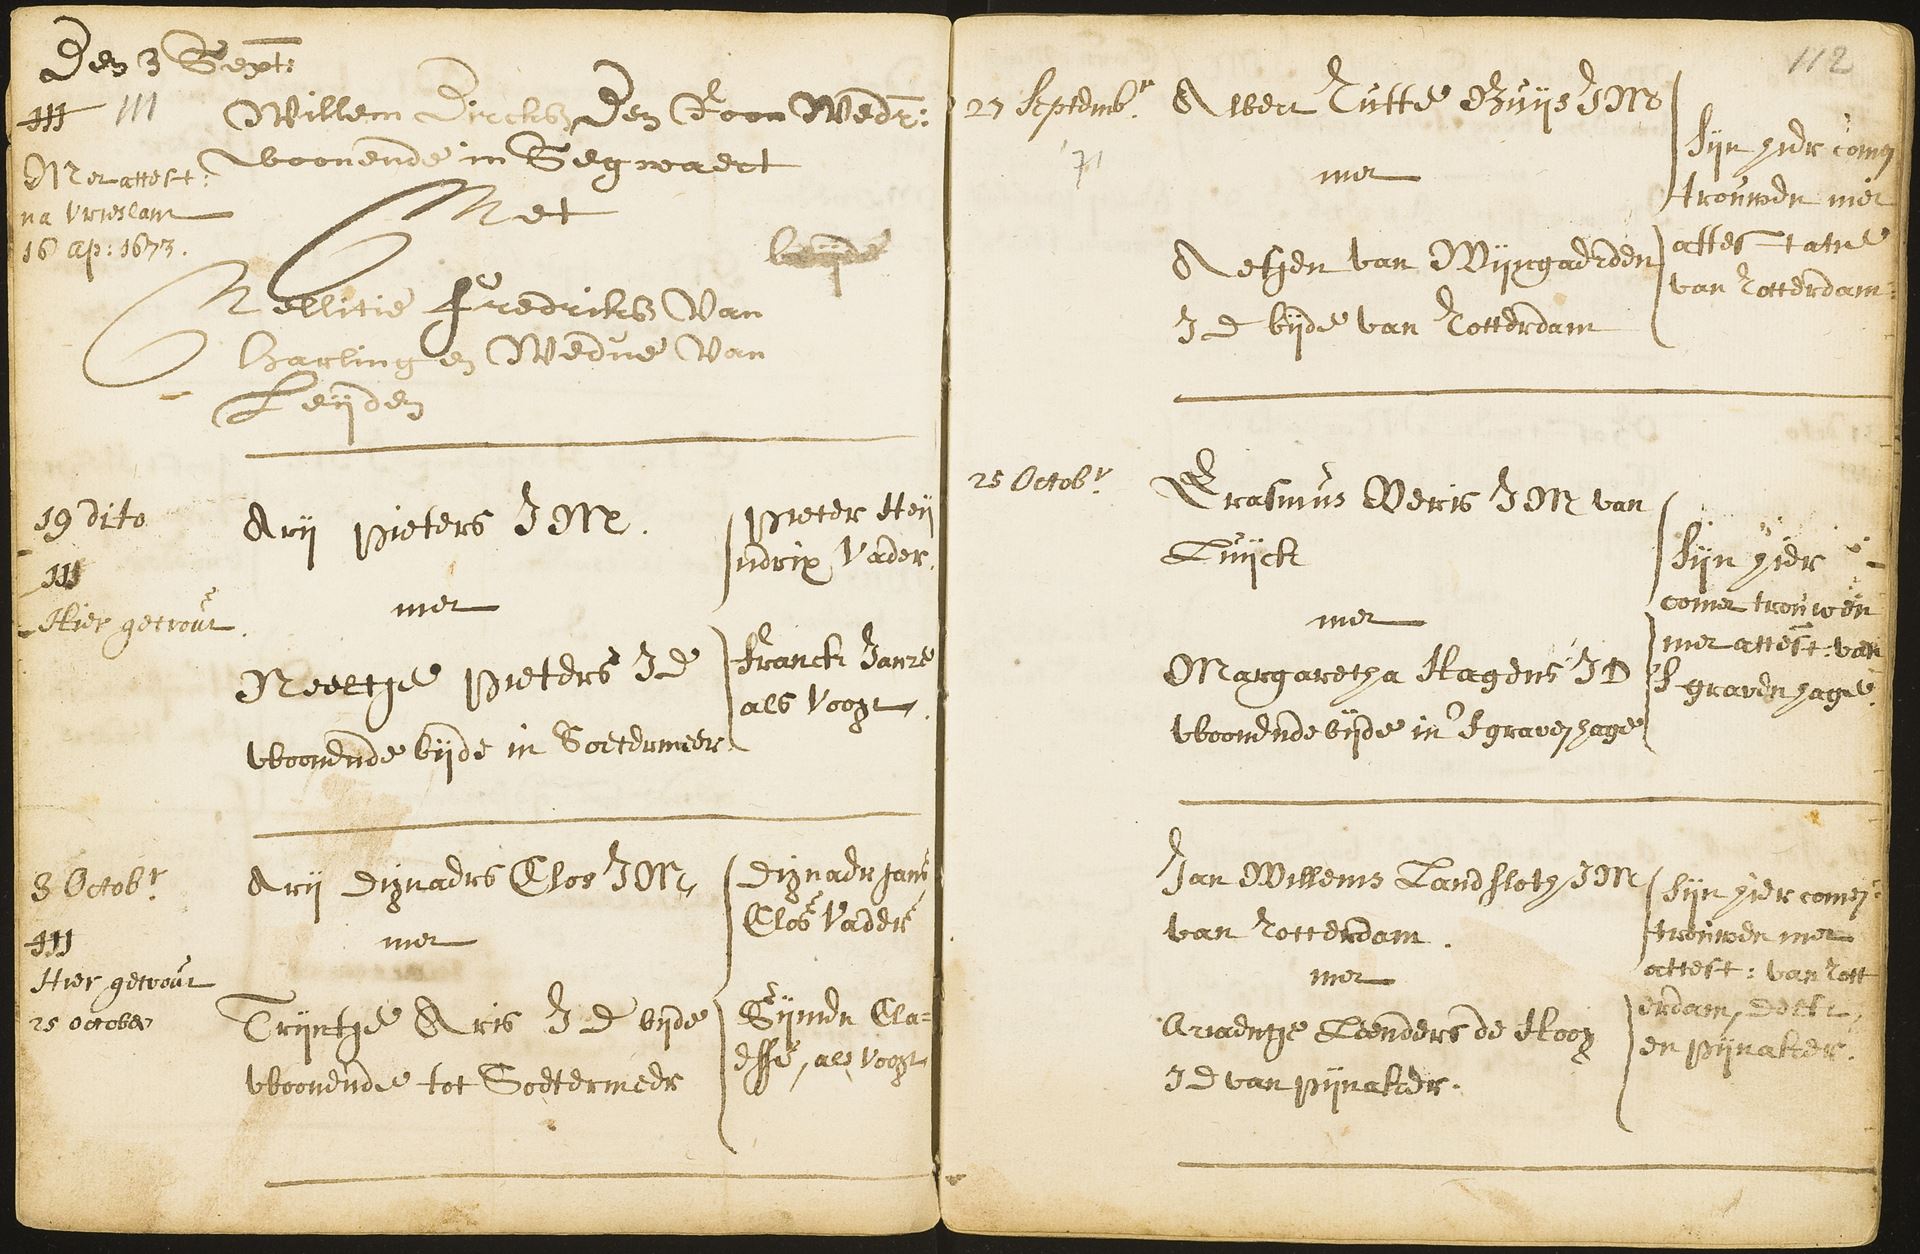 Den 3 Sept:
III 111
Willem Dircks Den Roon Wedr:
woonende in Segwaert
Met attest:
na Vrieslant
16 ap: 1673.
Met
beijde
Nellitie Fredriks Van
Harlingen Weduе Van
Leijden
19 dito
III
Hier getrout.
Arij pieters J M.
met
Neeltje pieters J D
woonende bijde in Soetermeer
pieter Heij
ndrix Vader.
Franck Janse
als Voogt.
3 Octobr.
III
Hier getrout
25 october
Arij Dignadrs Clos J M,
met
Trijntje Aris J D bijde
woonende tot Soetermeer
Dignadr Jans
Clos Vader
Sijmen Cla=
esse, als Voogt
112
27 Septembr.
71
Albert Rutte Buijs J M
met
Aetjen van Wijngaerden
J D bijde van Rotterdam
Sijn hier comen
trouwen met
attestatie
van Rotterdam.
25 Octobr.
Erasmus Beris J M van
Luijck
met
Margaretha Hagens J D
woonende bijde in Sgravenhage
Sijn hier
comen trouwen
met attest: van
S gravenhage.
Jan Willems Landsloth J M
van Rotterdam.
met
Ariaentje Leenders de Hoog
J D van pijnaker.
Sijn hier comen
trouwen met
attest: van Rott
erdam, Delft,
en pijnaker.